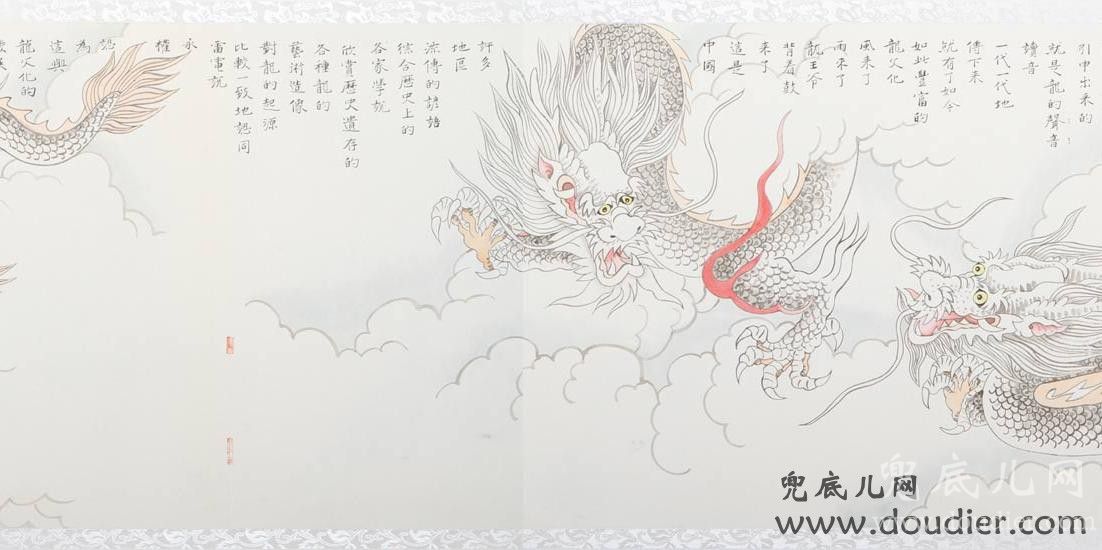 引申出来的
就是龍的聲音
讀音
一代一代地
傳下来
就有了如今
如此豐富的
龍文化
風来了
雨来了
龍王爷
背着鼓
来了
這是
中國
許多
地區
流傳的諺語
综合歷史上的
各家學說
欣賞歷史遺存的
各種龍的
藝術造像
對龍的起源
比較一致地認同
雷電說
承
權
認
為
這與
龍文化的
兜底儿网
www.doudier.com
兜底儿网